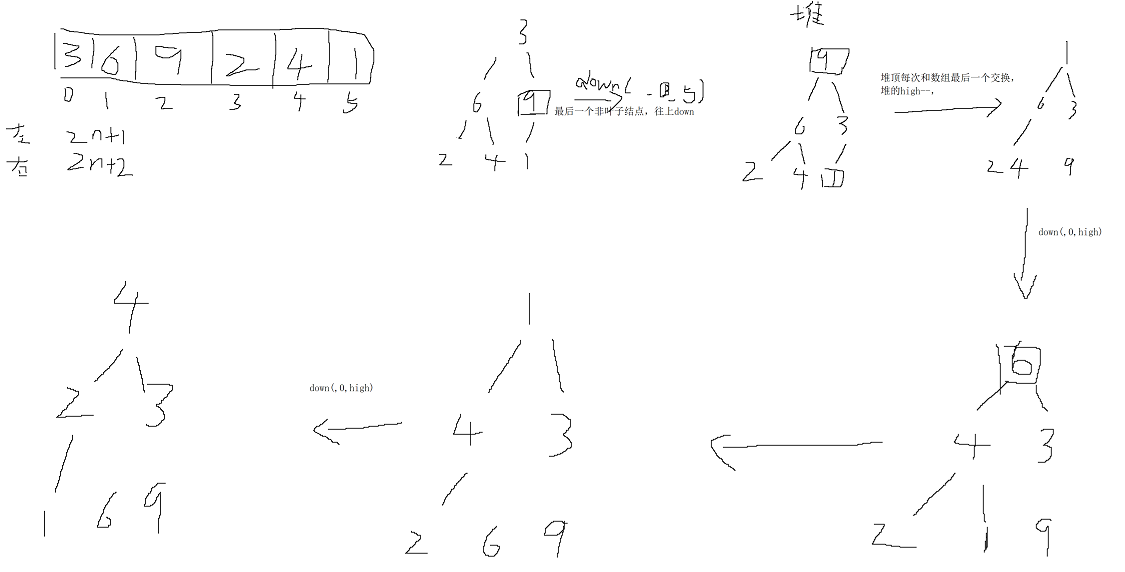 3 6 9 2 4 1
0 1 2 3 4 5
左 2n+1
右 2n+2
3
6 9
2 4 1
down( , 0, 5)
最后一个非叶子结点，往上down
堆
9
6 3
2 4 1
堆顶每次和数组最后一个交换，
堆的high--，
1
6 3
2 4 9
down(,0,high)
6
4 3
2 1 9
1
4 3
2 6 9
down(,0,high)
4
2 3
1 6 9